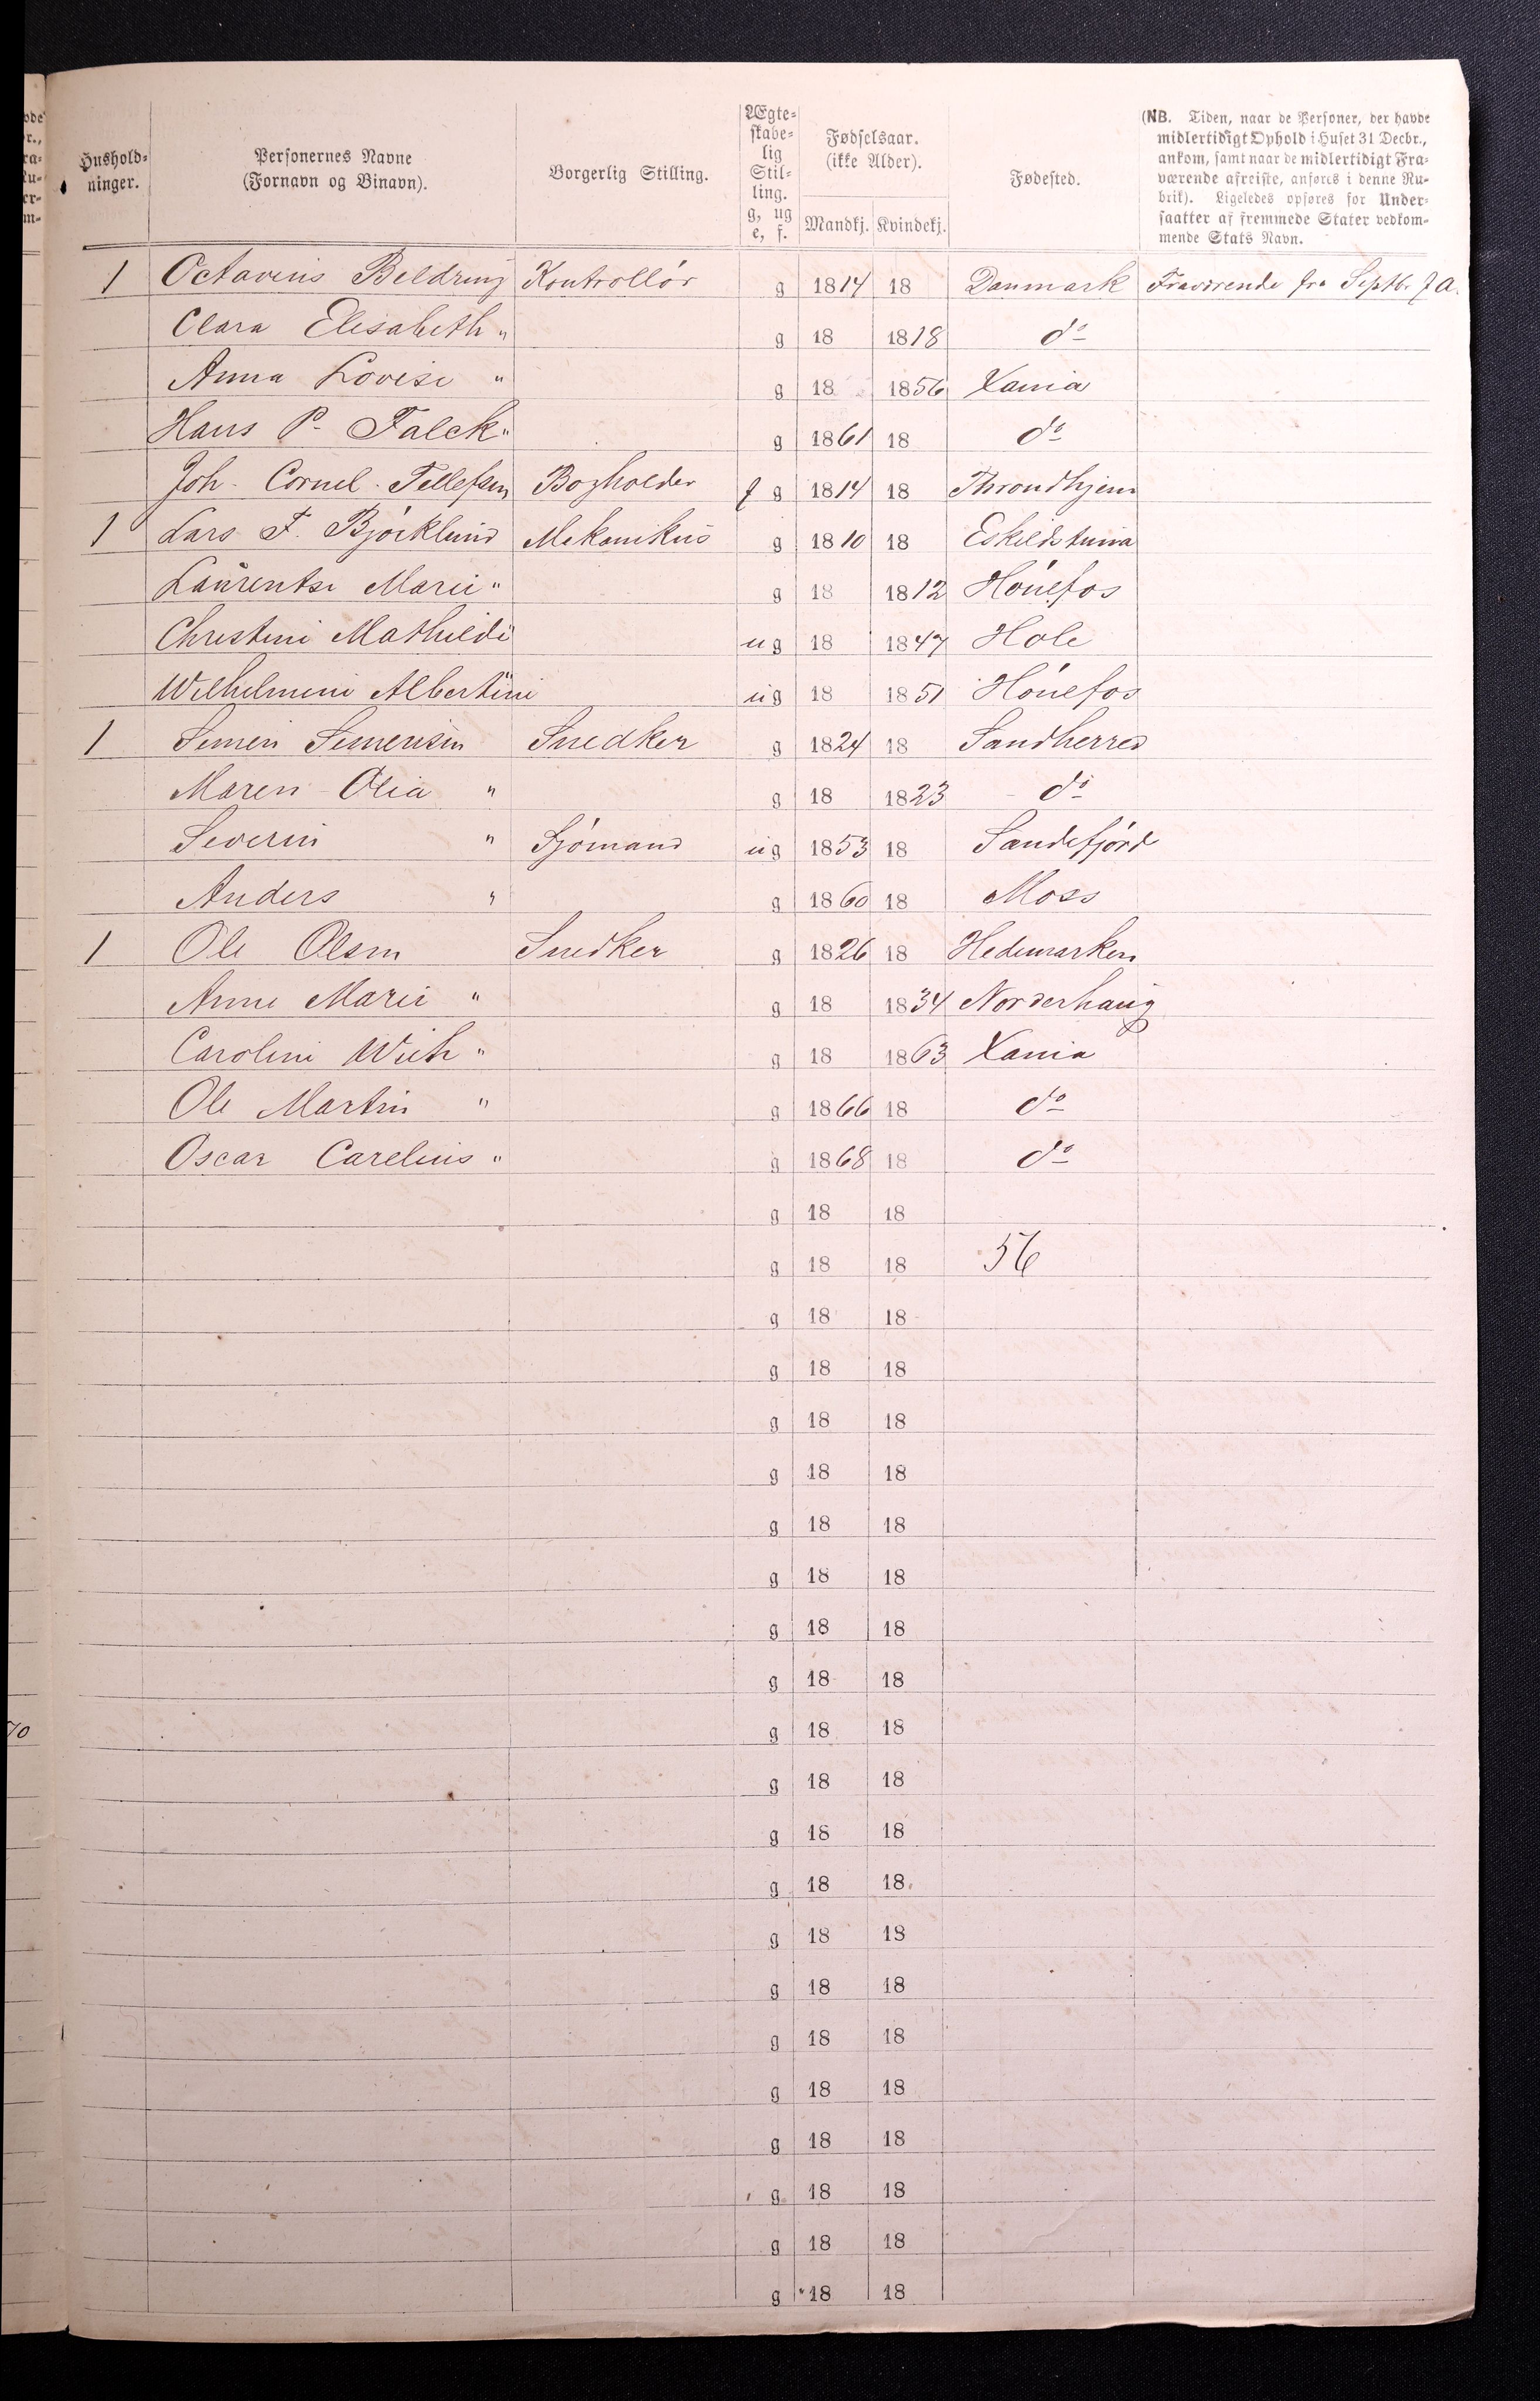 Hushold-
ninger.
Personernes Navne
(Fornavn og Binavn).
Borgerlig Stilling.
Ægte-
skabe-
lig
Stil-
ling.
g, ug
e, f.
Fødselsaar.
(ikke Alder).
Mandkj. Kvindekj.
Fødested.
(NB. Tiden, naar de Personer, der havde
midlertidigt Ophold i Huset 31 Decbr.,
ankom, samt naar de midlertidigt Fra-
værende afreiste, anføres i denne Ru-
brik). Ligeledes opføres for Under-
saatter af fremmede Stater vedkom-
mende Stats Navn.
1 Octavius Beldring Kontrollör g 1814 18 Danmark Fraværende fra Septb. f A.
Clara Elisabeth " g 18 1818 do
Anna Lovise " g 18 1856 Xania
Hans P. Falck " g 1861 18 do
Joh. Cornel. Tellefsen Bogholder f g 1814 18 Throndhjem
1 Lars F. Björklund Mekanikus g 1810 18 Eskildstuna
Laurentse Marie " g 18 1812 Hönefos
Christine Mathilde " ug 18 1847 Hole
Wilhelmine Albertine " ug 18 1851 Hönefos
1 Simen Simensen Snedker g 1824 18 Sandherred
Maren Olia " g 18 1823 do
Severin " Sjömand ug 1853 18 Sandefjord
Anders " g 1860 18 Moss
1 Ole Olsen Snedker g 1826 18 Hedemarken
Anne Marie " g 18 1834 Norderhaug
Caroline Wilh " g 18 1863 Xania
Ole Martin " g 1866 18 do
Oscar Carelius " g 1868 18 do
g 18 18
g 18 18 56
g 18 18
g 18 18
g 18 18
g 18 18
g 18 18
g 18 18
g 18 18
g 18 18
70 g 18 18
g 18 18
g 18 18
g 18 18
g 18 18
g 18 18
g 18 18
g 18 18
g 18 18
g 18 18
g 18 18
g 18 18